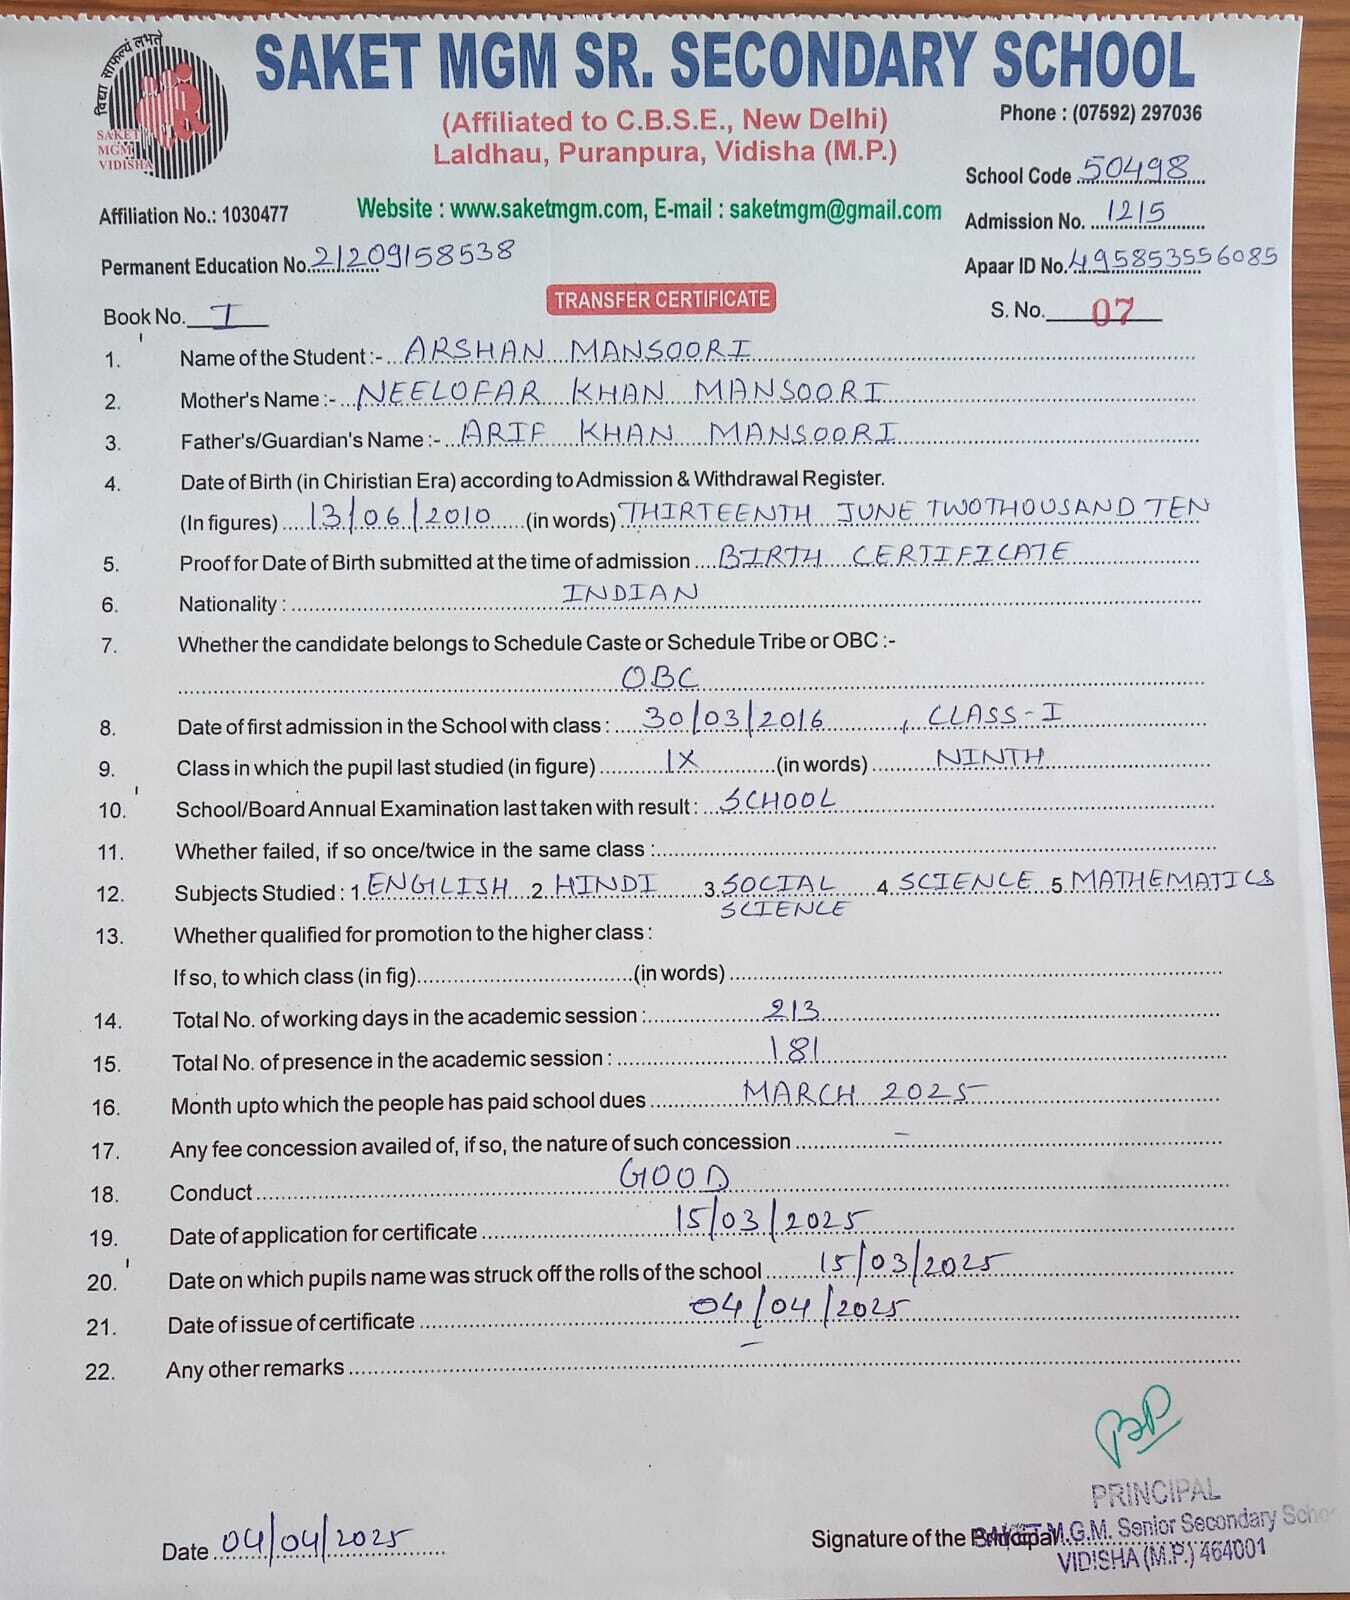 विद्या साफल्यं लभते
SAKET
MGM
VIDISHA
SAKET MGM SR. SECONDARY SCHOOL
(Affiliated to C.B.S.E., New Delhi)
Phone : (07592) 297036
Laldhau, Puranpura, Vidisha (M.P.)
School Code 50498
Affiliation No.: 1030477
Website : www.saketmgm.com, E-mail : saketmgm@gmail.com
Admission No. 1215
Permanent Education No. 21209158538
Apaar ID No. 495853556085
Book No. I
TRANSFER CERTIFICATE
S. No. 07
1. Name of the Student :- ARSHAN MANSOORI
2. Mother's Name :- NEELOFAR KHAN MANSOORI
3. Father's/Guardian's Name :- ARIF KHAN MANSOORI
4. Date of Birth (in Chiristian Era) according to Admission & Withdrawal Register.
(In figures) 13/06/2010 (in words) THIRTEENTH JUNE TWOTHOUSAND TEN
5. Proof for Date of Birth submitted at the time of admission BIRTH CERTIFICATE
6. Nationality : INDIAN
7. Whether the candidate belongs to Schedule Caste or Schedule Tribe or OBC :-
OBC
8. Date of first admission in the School with class : 30/03/2016 , CLASS-I
9. Class in which the pupil last studied (in figure) IX (in words) NINTH
10. School/Board Annual Examination last taken with result : SCHOOL
11. Whether failed, if so once/twice in the same class :
12. Subjects Studied : 1. ENGILISH 2. HINDI 3. SOCIAL 4. SCIENCE 5. MATHEMATICS
SCIENCE
13. Whether qualified for promotion to the higher class :
If so, to which class (in fig) (in words)
14. Total No. of working days in the academic session : 213
15. Total No. of presence in the academic session : 181
16. Month upto which the people has paid school dues MARCH 2025
17. Any fee concession availed of, if so, the nature of such concession –
18. Conduct GOOD
19. Date of application for certificate 15/03/2025
20. Date on which pupils name was struck off the rolls of the school 15/03/2025
21. Date of issue of certificate 04/04/2025
22. Any other remarks –
BP
PRINCIPAL
Date 04/04/2025
Signature of the Principal
SAKET M.G.M. Senior Secondary Scho
VIDISHA (M.P.) 464001